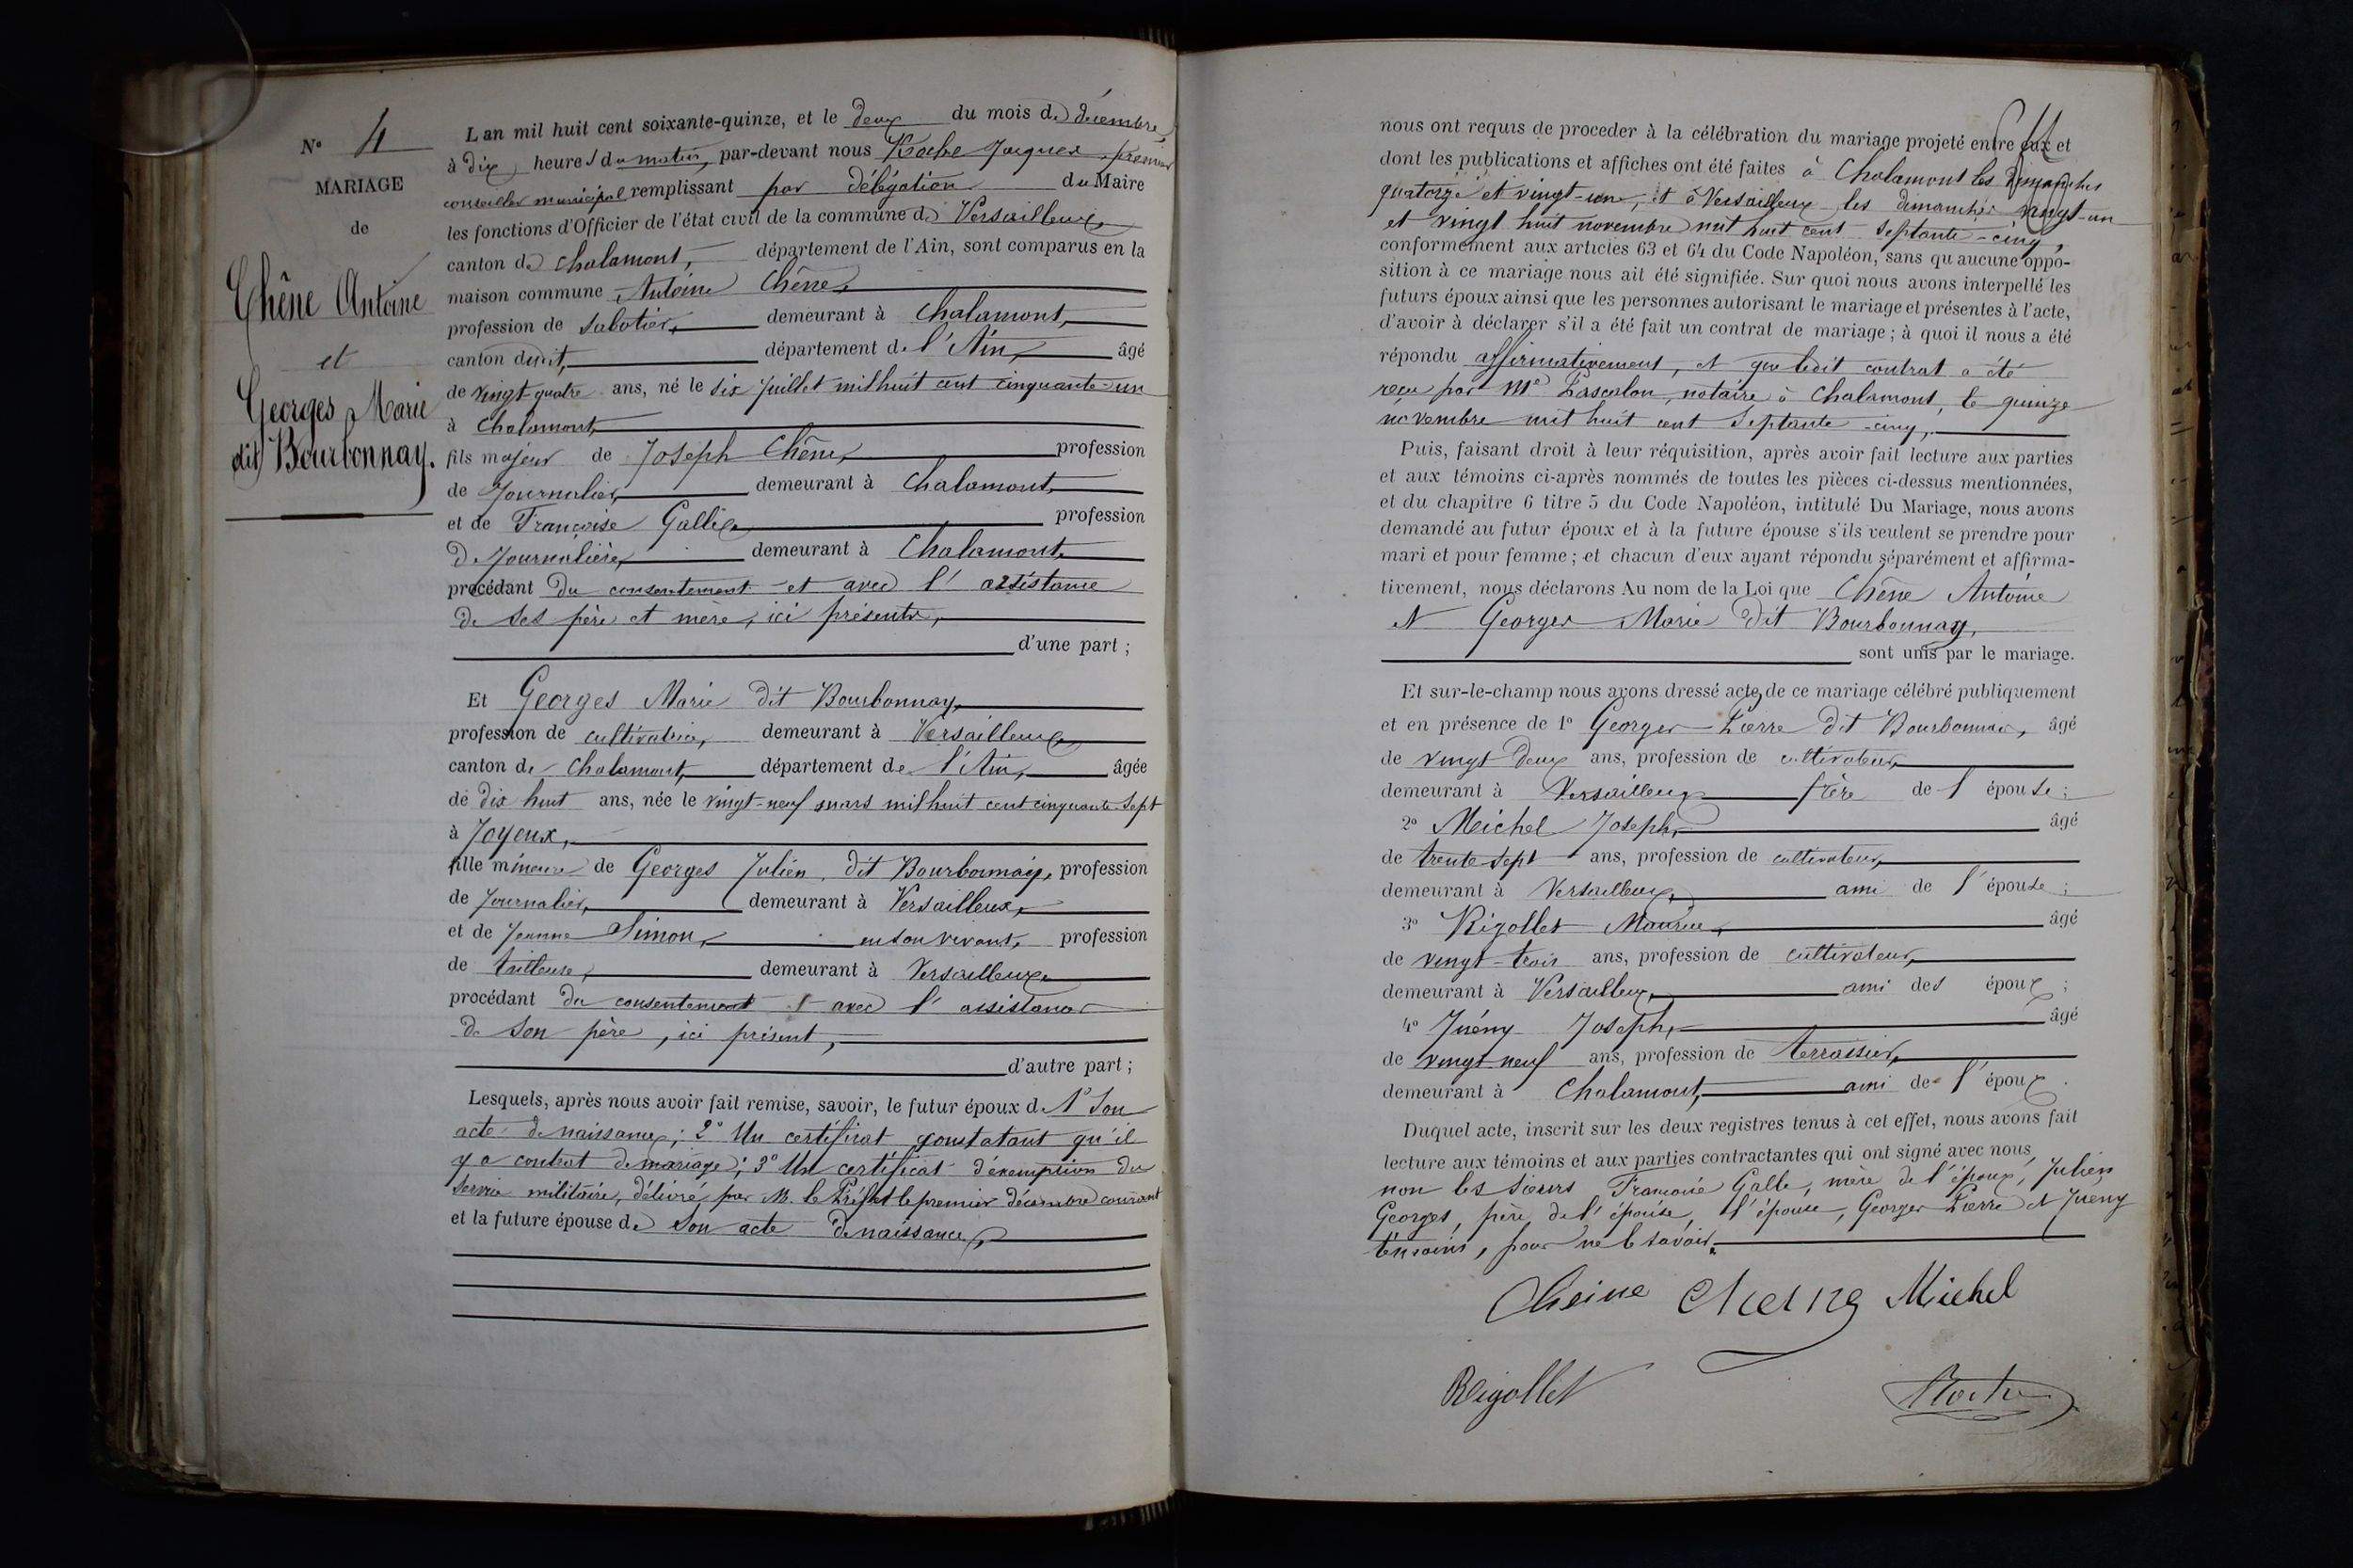 N° 4
MARIAGE
de
Chêne Antoine
et
Georges Marie
dit Bourbonnay.
L'an mil huit cent soixante-quinze, et le deux du mois de décembre,
à dix heures du matin, par-devant nous Jacques, premier
conseiller municipal remplissant par délégation du Maire
les fonctions d'Officier de l'état civil de la commune de Versailleux,
canton de Chalamont, département de l'Ain, sont comparus en la
maison commune Antoine Chêne,
profession de sabotier, demeurant à Chalamont,
canton dudit, département de l'Ain, âgé
de vingt-quatre ans, né le six juillet mil huit cent cinquante-un
à Chalamont,
fils majeur de Joseph Chêne, profession
de journalier, demeurant à Chalamont,
et de Françoise profession
de journalière, demeurant à Chalamont,
procédant du consentement et avec l'assistance
de ses père et mère, ici présents,
d'une part ;
Et Georges Marie dit Bourbonnay,
profession de cultivatrice, demeurant à Versailleux,
canton de Chalamont, département de l'Ain, âgée
de dix huit ans, née le vingt-neuf mars mil huit cent cinquante-sept
à Joyeux,
fille mineure de Georges Julien, dit Bourbonnay, profession
de journalier, demeurant à Versailleux,
et de Jeanne Simon, en son vivant, profession
de tailleuse, demeurant à Versailleux,
procédant du consentement et avec l'assistance
de son père, ici présent,
d'autre part ;
Lesquels, après nous avoir fait remise, savoir, le futur époux de 1° Son
acte de naissance ; 2° Un certificat constatant qu'il
y a contrat de mariage ; 3° Un certificat d'exemption du
service militaire, délivré par M. le Préfet le premier décembre courant
et la future épouse de Son acte de naissance,
nous ont requis de proceder à la célébration du mariage projeté entre eux et
dont les publications et affiches ont été faites à Chalamont les dimanches
quatorze et vingt-un, et à Versailleux les dimanches vingt-un
et vingt huit novembre mil huit cent septante-cinq,
conformément aux articles 63 et 64 du Code Napoléon, sans qu'aucune oppo-
sition à ce mariage nous ait été signifiée. Sur quoi nous avons interpellé les
futurs époux ainsi que les personnes autorisant le mariage et présentes à l'acte,
d'avoir à déclarer s'il a été fait un contrat de mariage ; à quoi il nous a été
répondu affirmativement, et que ledit contrat a été
reçu par Me Pascalon, notaire à Chalamont, le quinze
novembre mil huit cent septante-cinq,
Puis, faisant droit à leur réquisition, après avoir fait lecture aux parties
et aux témoins ci-après nommés de toutes les pièces ci-dessus mentionnées,
et du chapitre 6 titre 5 du Code Napoléon, intitulé Du Mariage, nous avons
demandé au futur époux et à la future épouse s'ils veulent se prendre pour
mari et pour femme ; et chacun d'eux ayant répondu séparément et affirma-
tivement, nous déclarons Au nom de la Loi que Chêne Antoine
et Georges Marie dit Bourbonnay,
sont unis par le mariage.
Et sur-le-champ nous avons dressé acte de ce mariage célébré publiquement
et en présence de 1° Georges Pierre dit Bourbonnay, âgé
de vingt deux ans, profession de cultivateur,
demeurant à Versailleux frère de l'épouse ;
2° Michel Joseph, âgé
de trente-sept ans, profession de cultivateur,
demeurant à Versailleux, ami de l'épouse ;
3° Rigollet Maurice, âgé
de vingt-trois ans, profession de cultivateur,
demeurant à Versailleux, ami des époux ;
4° Juény Joseph, âgé
de vingt-neuf ans, profession de terrassier,
demeurant à Chalamont, ami de l'époux.
Duquel acte, inscrit sur les deux registres tenus à cet effet, nous avons fait
lecture aux témoins et aux parties contractantes qui ont signé avec nous
non les sieurs Françoise Galle, mère de l'époux, Julien
Georges, père de l'épouse, l'épouse, Georges Pierre et Juény
témoins, pour ne le savoir.
Cheine Michel
Rigollet